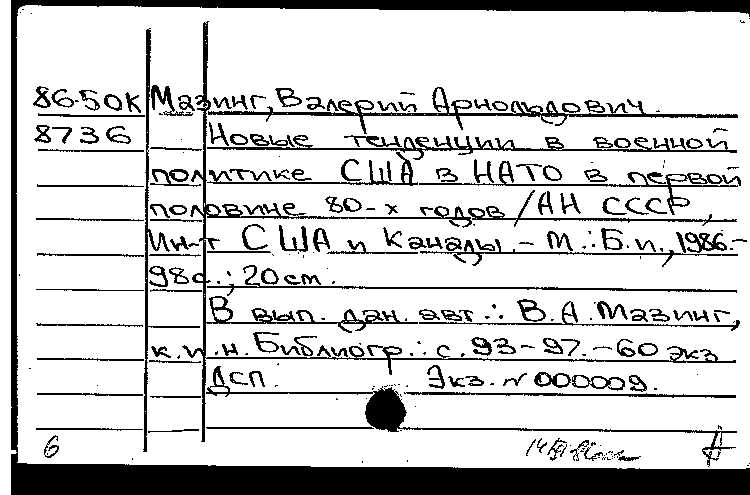 86-50К Мазинг, Валерий Арнольдович.
8736 Новые тенденции в военной
политике США в НАТО в первой
половине 80-х годов / АН СССР,
Ин-т США и Канады. - М.: Б.и., 1986. -
98с.; 20см.
В вып. дан. авт.: В.А. Мазинг,
к.и.н. Библиогр.: с. 93-97. - 60 экз
ДСП. Экз. N 000009.
6